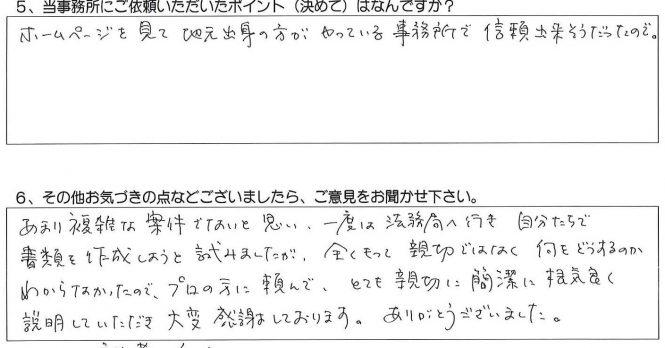 5、当事務所にご依頼いただいたポイント（決めて）はなんですか？
ホームページを見て 地元出身の方が やっている 事務所で 信頼出来そうだったので。
6、その他お気づきの点などございましたら、ご意見をお聞かせ下さい。
あまり複雑な案件でないと思い、一度は法務局へ行き 自分たちで
書類を作成しようと試みましたが、全くもって親切ではなく何をどうするのか
わからなかったので、プロの方に頼んで、とても親切に簡潔に根気良く
説明していただき大変感謝しております。ありがとうございました。